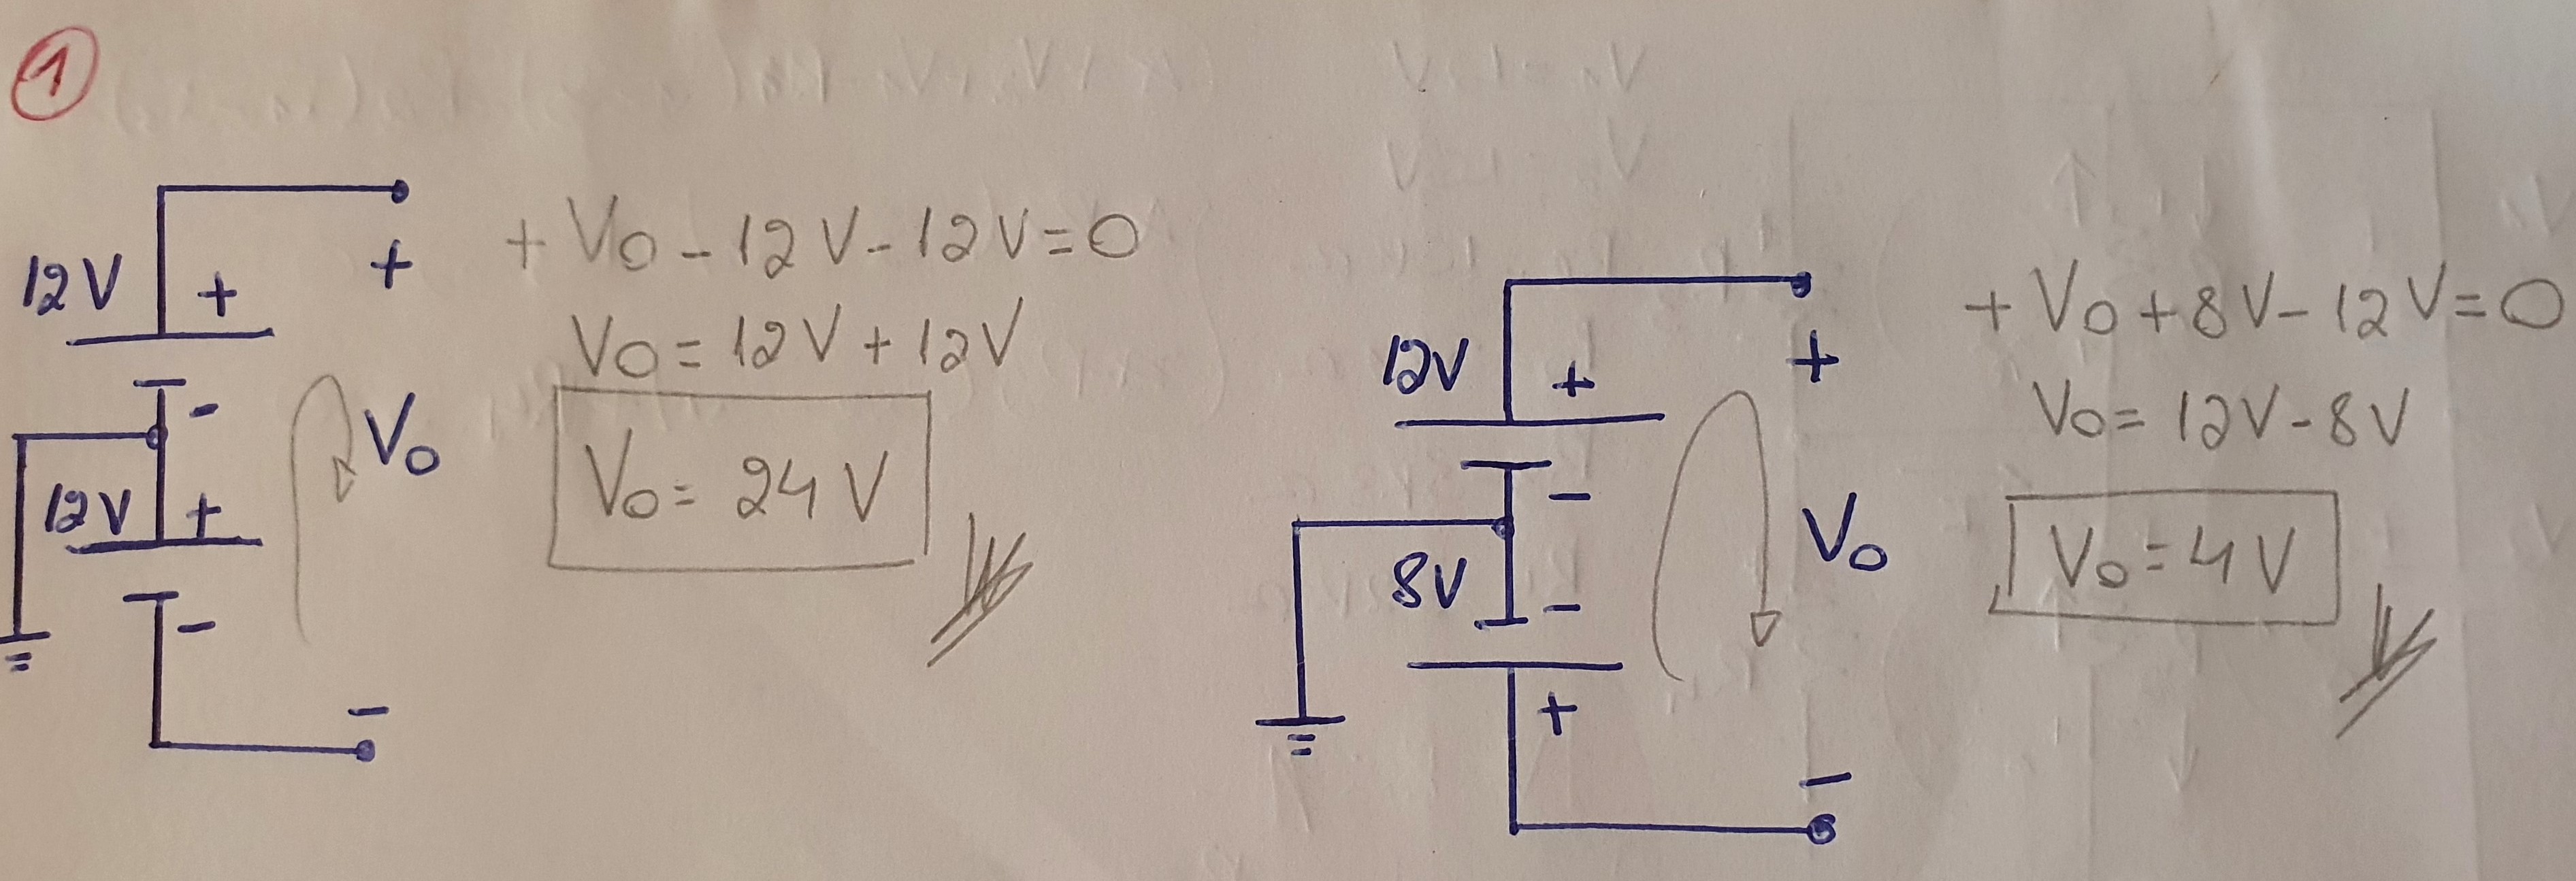 1
12V
+
+
-
Vo
12V
+
-
-
+ Vo - 12V - 12V = 0
Vo = 12V + 12V
Vo = 24V
12V
+
+
-
Vo
8V
-
+
-
+ Vo + 8V - 12V = 0
Vo = 12V - 8V
Vo = 4V